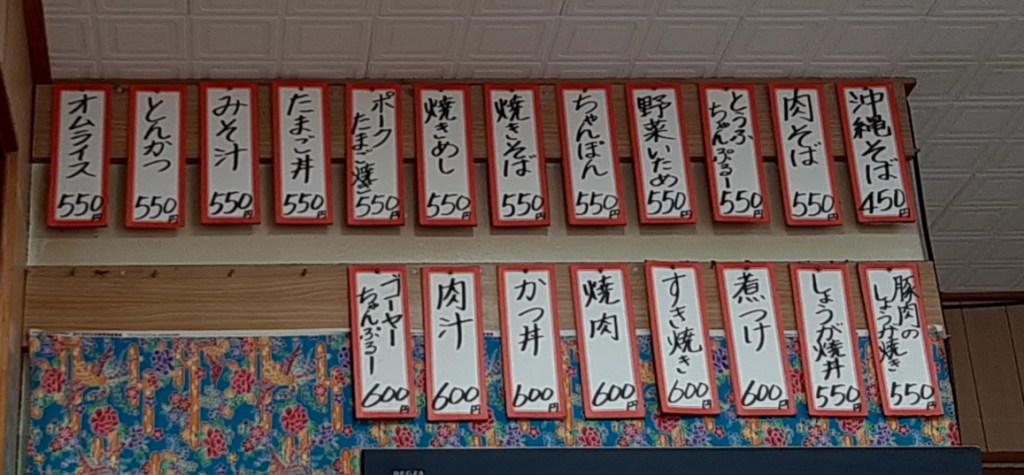 沖縄そば
450円
肉そば
550円
とうふ
ちゃんぷるー
550円
野菜いため
550円
ちゃんぽん
550円
焼きそば
550円
焼きめし
550円
ポーク
たまご焼き
550円
たまご丼
550円
みそ汁
550円
とんかつ
550円
オムライス
550円
豚肉の
しょうが焼き
550円
しょうが焼丼
550円
煮つけ
600円
すき焼き
600円
焼肉
600円
かつ丼
600円
肉汁
600円
ゴーヤー
ちゃんぷるー
600円
REGZA